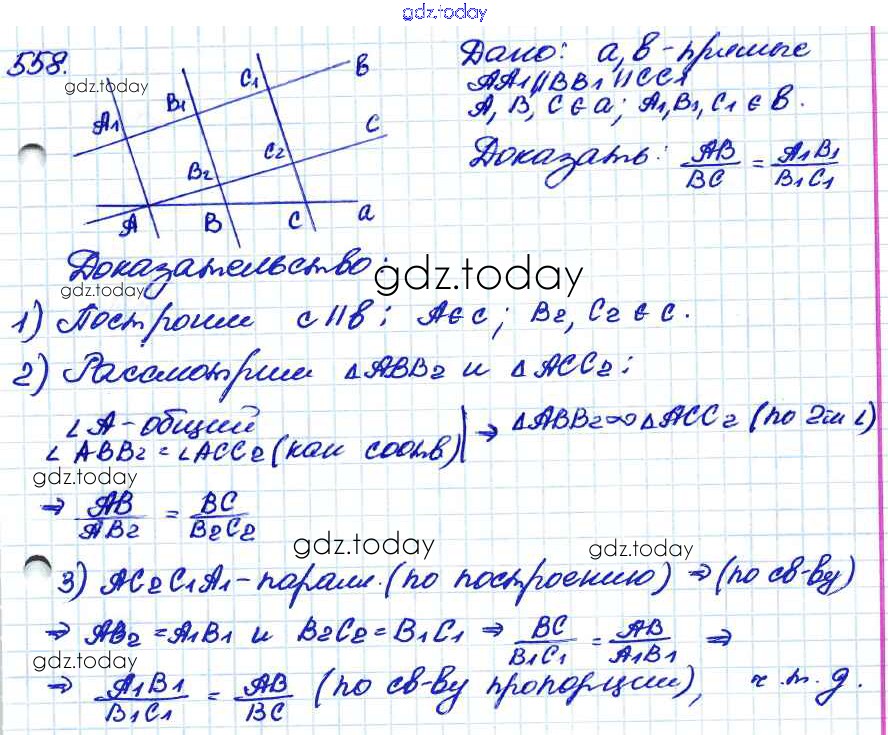 gdz.today
558.
gdz.today
A₁ B₁ C₁ в
B₂ C₂ с
A B C а
Дано: а, в - прямые
AA₁ || BB₁ || CC₁
A, B, C ∈ а; A₁, B₁, C₁ ∈ в.
Доказать: AB/BC = A₁B₁/B₁C₁
Доказательство:
gdz.today
gdz.today
1) Построим с || в; A ∈ с; B₂, C₂ ∈ с.
2) Рассмотрим △ABB₂ и △ACC₂:
∠A - общий
∠ABB₂ = ∠ACC₂ (как соотв) | ⇒ △ABB₂ ∾ △ACC₂ (по 2м ∠)
gdz.today
⇒ AB/AB₂ = BC/B₂C₂
gdz.today
gdz.today
3) AC₂C₁A₁ - паралл. (по построению) ⇒ (по св-ву)
⇒ AB₂ = A₁B₁ и B₂C₂ = B₁C₁ ⇒ BC/B₁C₁ = AB/A₁B₁ ⇒
gdz.today
⇒ A₁B₁/B₁C₁ = AB/BC (по св-ву пропорции), ч.т.д.